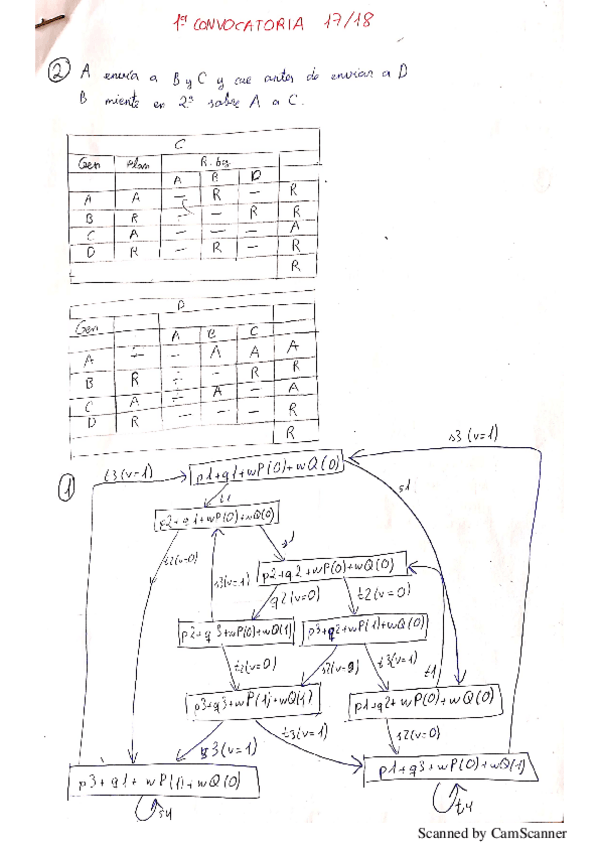 1ª CONVOCATORIA 17/18
② A envía a B y C y cae antes de enviar a D
B miente en 2ª sobre A a C.
C
Gen Plan R. biz
A B D
A A — R — R
B R — — R R
C A — — — A
D R — R — R
R
D
Gen
A B C
A — — A A A
B R — — R R
C A — A — A
D R — — — R
R
①
t3(v=1)
s3(v=1)
p1+q1+wP(0)+wQ(0)
t1
s1
p2+q1+wP(0)+wQ(0)
t2(v=0)
s1
p2+q2+wP(0)+wQ(0)
s3(v=1)
t2(v=0)
p2+q3+wP(0)+wQ(1)
p3+q2+wP(1)+wQ(0)
t2(v=0)
t3(v=1)
t1
p3+q3+wP(1)+wQ(1)
p1+q2+wP(0)+wQ(0)
s3(v=1)
t3(v=1)
s2(v=0)
p3+q1+wP(1)+wQ(0)
p1+q3+wP(0)+wQ(1)
s4
t4
Scanned by CamScanner